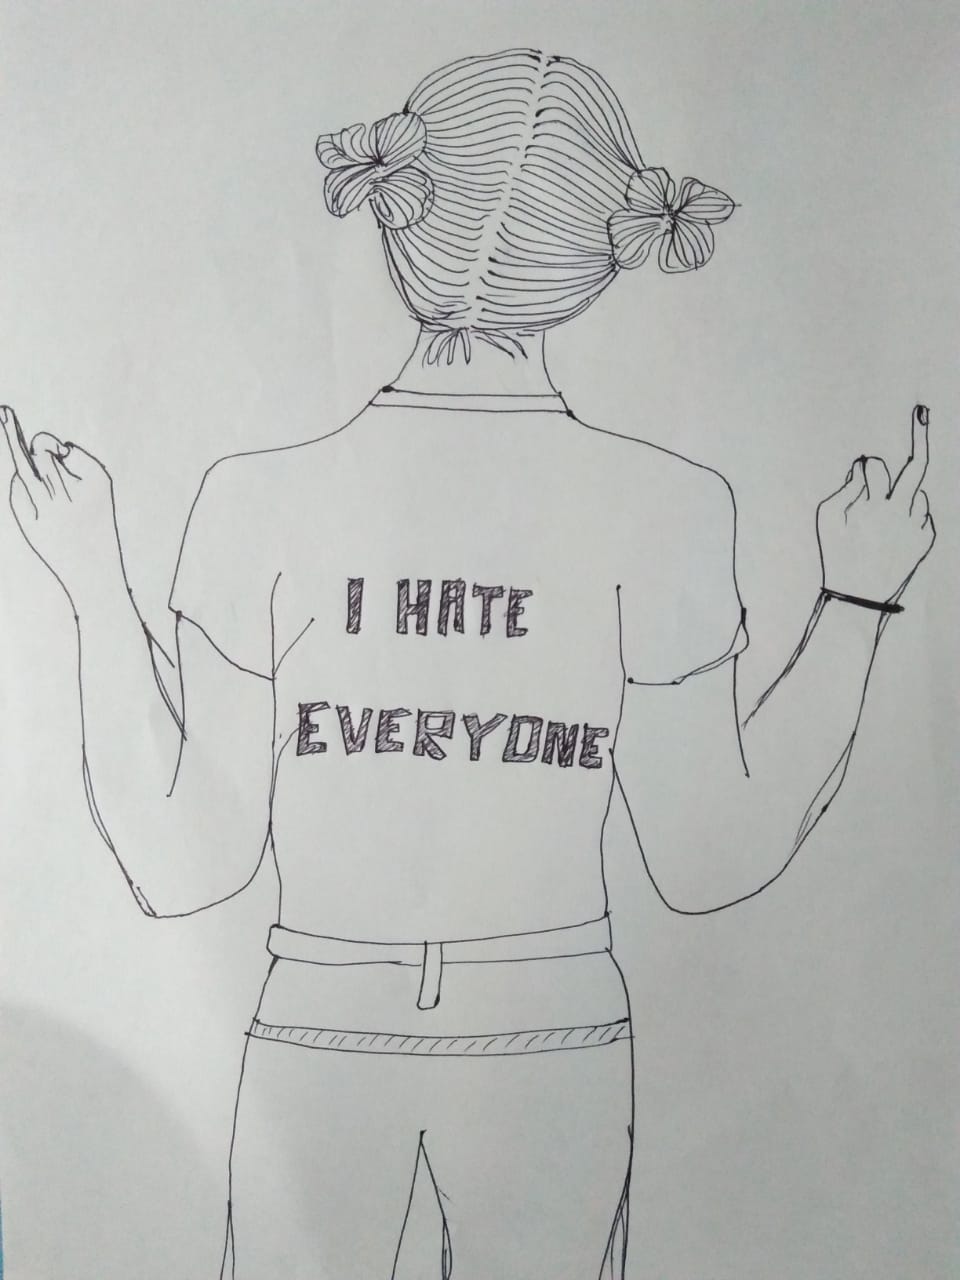 I HATE
EVERYONE